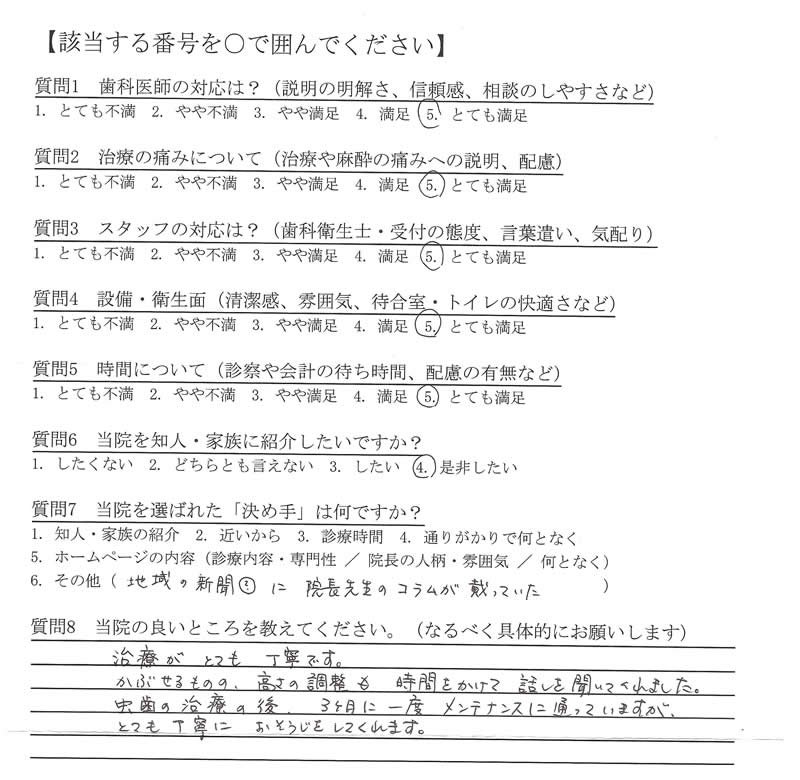 【該当する番号を○で囲んでください】
質問1　歯科医師の対応は？（説明の明解さ、信頼感、相談のしやすさなど）
1. とても不満　2. やや不満　3. やや満足　4. 満足　5. とても満足
質問2　治療の痛みについて（治療や麻酔の痛みへの説明、配慮）
1. とても不満　2. やや不満　3. やや満足　4. 満足　5. とても満足
質問3　スタッフの対応は？（歯科衛生士・受付の態度、言葉遣い、気配り）
1. とても不満　2. やや不満　3. やや満足　4. 満足　5. とても満足
質問4　設備・衛生面（清潔感、雰囲気、待合室・トイレの快適さなど）
1. とても不満　2. やや不満　3. やや満足　4. 満足　5. とても満足
質問5　時間について（診察や会計の待ち時間、配慮の有無など）
1. とても不満　2. やや不満　3. やや満足　4. 満足　5. とても満足
質問6　当院を知人・家族に紹介したいですか？
1. したくない　2. どちらとも言えない　3. したい　4. 是非したい
質問7　当院を選ばれた「決め手」は何ですか？
1. 知人・家族の紹介　2. 近いから　3. 診療時間　4. 通りがかりで何となく
5. ホームページの内容（診療内容・専門性 ／ 院長の人柄・雰囲気 ／ 何となく）
6. その他（ 地域の新聞に 院長先生のコラムが載っていた ）
質問8　当院の良いところを教えてください。（なるべく具体的にお願いします）
治療が とても 丁寧です。
かぶせるものの、高さの調整も 時間をかけて 話しを聞いてくれました。
虫歯の治療の後、3ヶ月に一度 メンテナンスに通っていますが、
とても丁寧に おそうじをしてくれます。